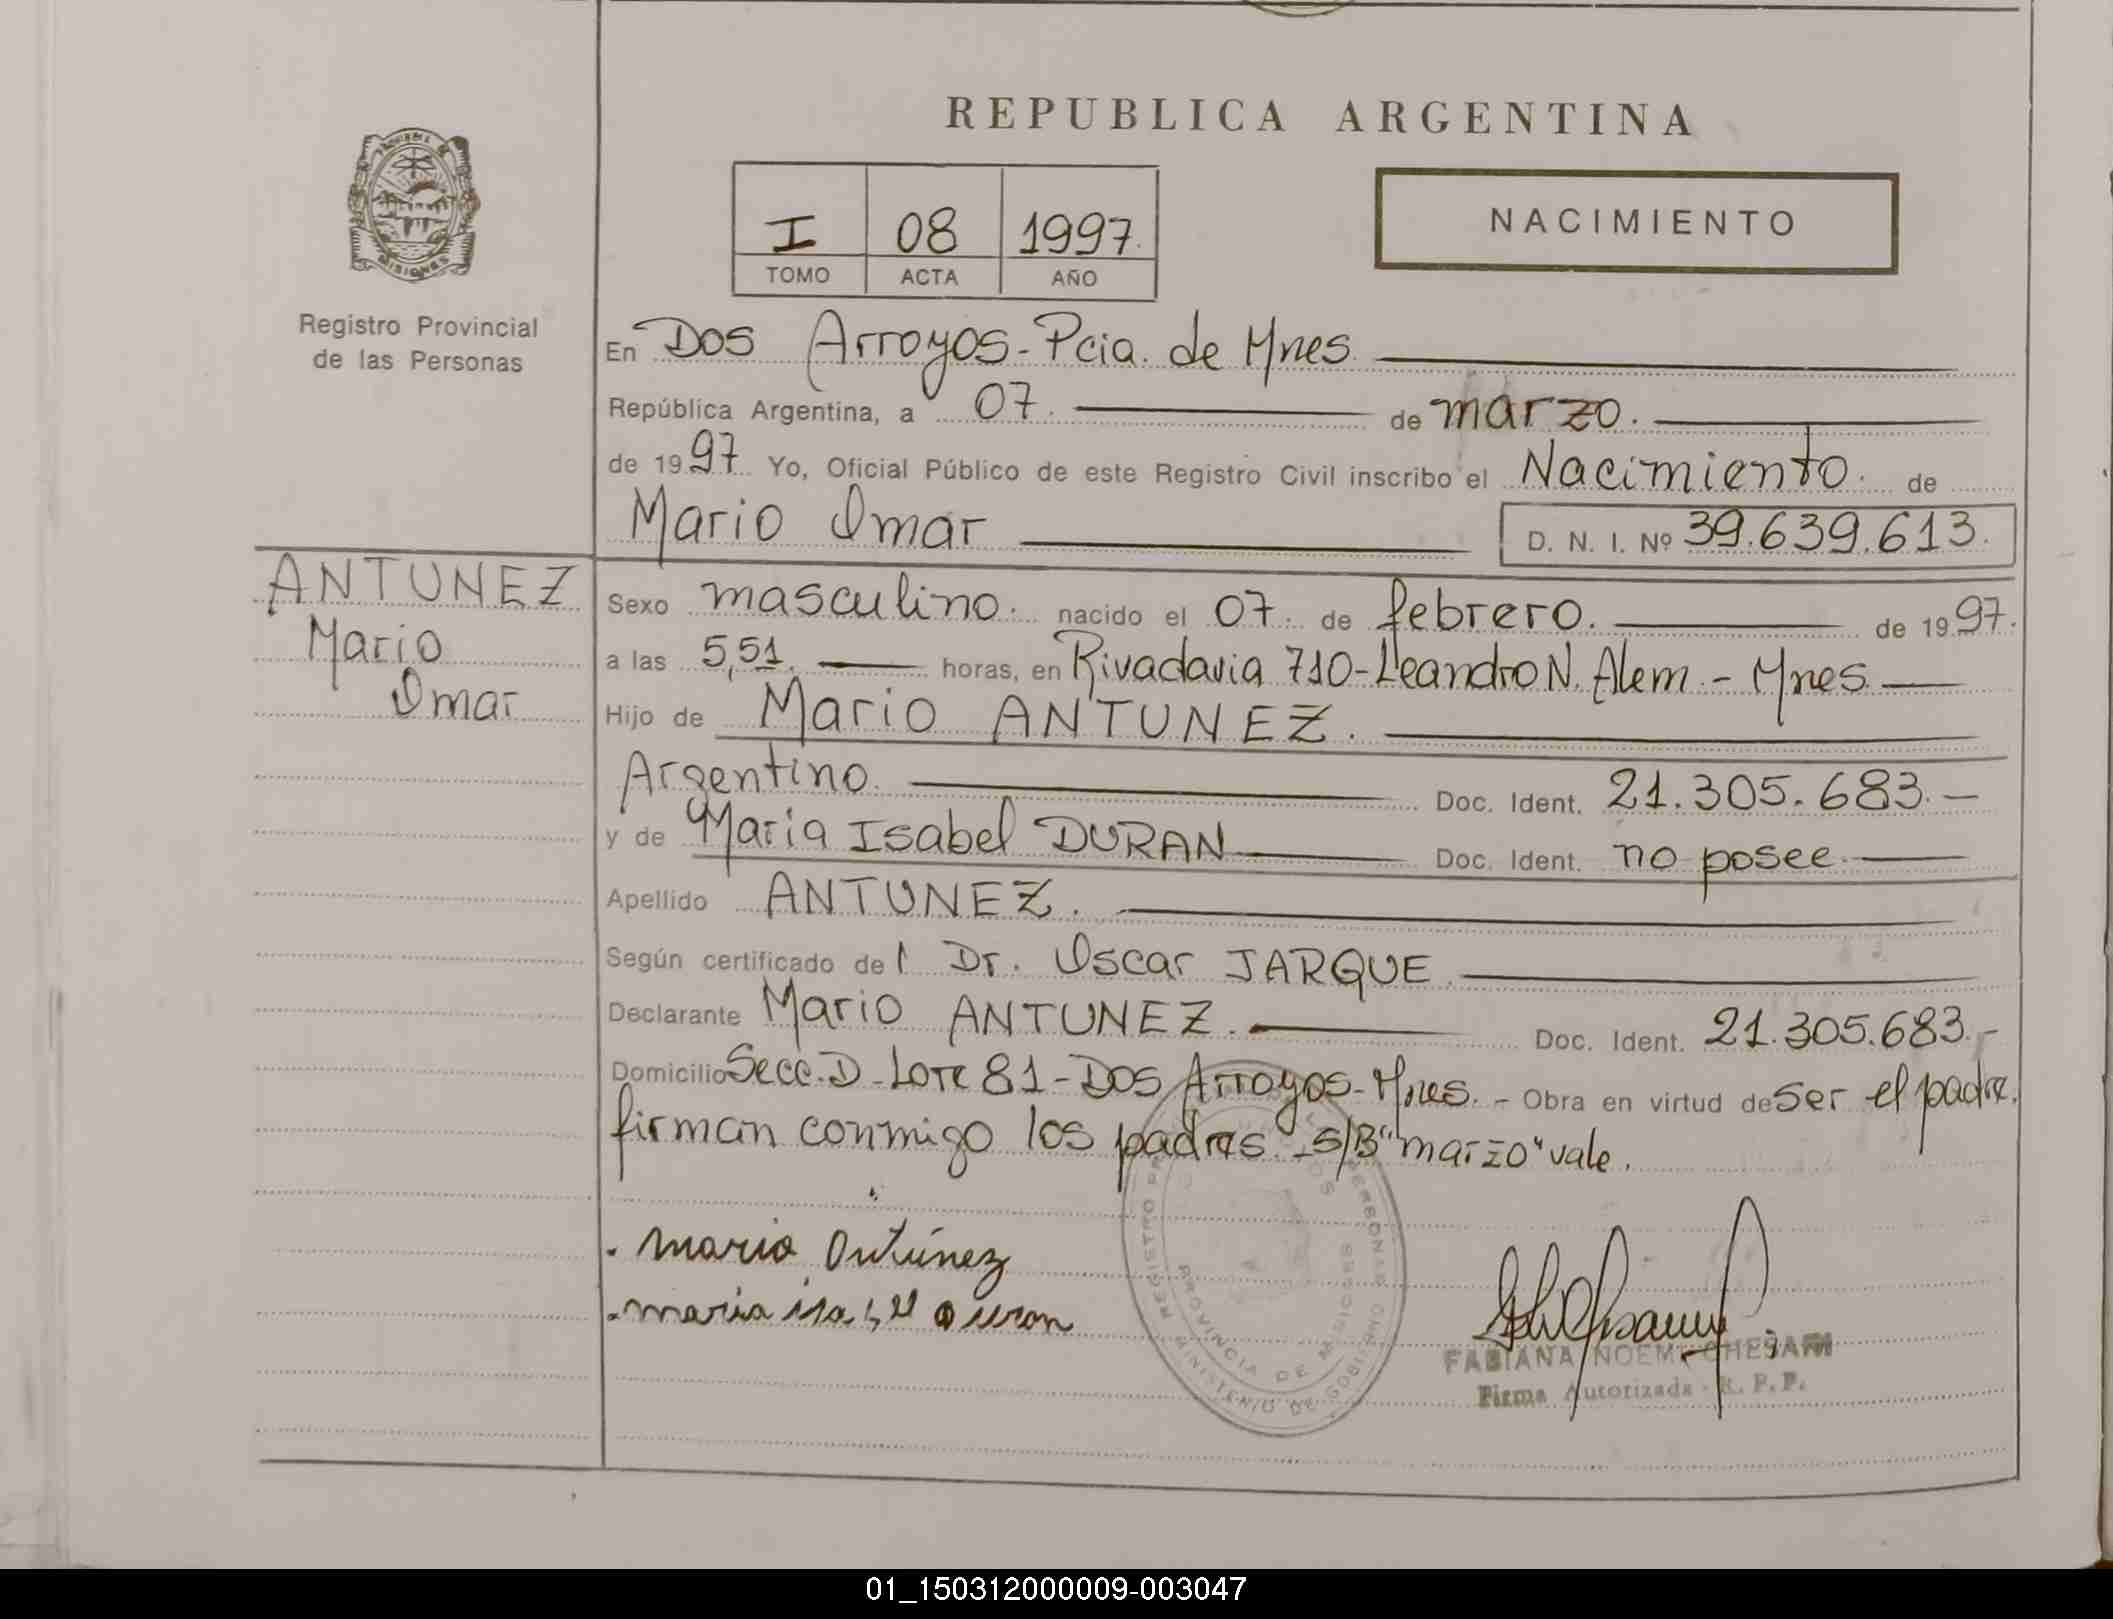 REPUBLICA ARGENTINA
MISIONES
Registro Provincial
de las Personas
I 08 1997.
TOMO ACTA AÑO
NACIMIENTO
En Dos Arroyos - Pcia. de Mnes
República Argentina, a 07. de marzo.
de 1997 Yo, Oficial Público de este Registro Civil inscribo el Nacimiento. de
Mario Omar D. N. I. Nº 39.639.613.
ANTUNEZ
Mario
Omar
Sexo masculino. nacido el 07. de febrero. de 1997.
a las 5,51. horas, en Rivadavia 710 - Leandro N. Alem - Mnes
Hijo de Mario ANTUNEZ.
Argentino. Doc. Ident. 21.305.683.-
y de Maria Isabel DURAN Doc. Ident. no posee
Apellido ANTUNEZ.
Según certificado del Dr. Oscar JARQUE.
Declarante Mario ANTUNEZ. Doc. Ident. 21.305.683.-
Domicilio Secc. D - Lote 81 - Dos Arroyos - Mnes. - Obra en virtud de ser el padre.
firman conmigo los padres. - S/B "marzo" vale.
Mario Antúnez
maria isabel duran
REGISTRO PERSONAS
PROVINCIA DE MISIONES
MINISTERIO DE GOBIERNO
FABIANA NOEMI
Firma Autorizada - R. P. P.
01_150312000009-003047